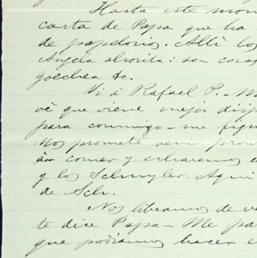 Hasta este mom
carta de Papa que ha
de papelorio. Allí lo
Angela
Goechea &c.
Vi á Rafael P. - M
vé que viene mejor disp
para conmigo - me figu
Nos promete venir pron
á comer y estaremos
y los Schuyler. Aqui
de Schr.
Nos libramos de ve
te dice Papa - Me pa
que podiamos hacer e